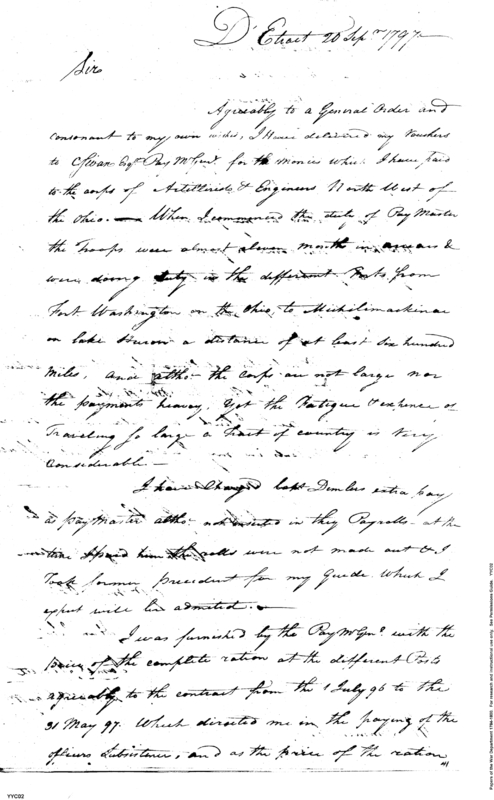 D'Etroit 20 Sepr 1797
Sir
Agreeably to a General Order and
consonant to my own wishes, I Have delivered my Vouchers
to C Swan Esqr Pay M Genl for the monies which I have paid
to the corps of Artillerists & Engineers North West of
the Ohio. When I commenced the duty of Pay Master
the Troops were almost eleven months in arrears &
were doing duty in the different Posts from
Fort Washington on the Ohio, to Michilimackinac
on lake Huron a distance of at least Six hundred
Miles, and altho the corps are not large nor
the payments heavy, Yet the Fatigue & expence of
Traveling So large a Tract of country is Very
Considerable
I have Charged Capt Demlers extra pay
as paymaster altho not inserted in they Payrolls at the
time I paid him the rolls were not made out & I
Took former precedent for my Guide which I
expect will be admited.
I was furnished by the Pay M Genl with the
price of the complete ration at the different Posts
agreeably to the contract from the 1 July 96 to the
31 May 97. Which directed me in the paying of the
officers Subsistence, and as the price of the ration
YYC02
Papers of the War Department 1784-1800. For research and instructional use only. See Permissions Guide. YYC02